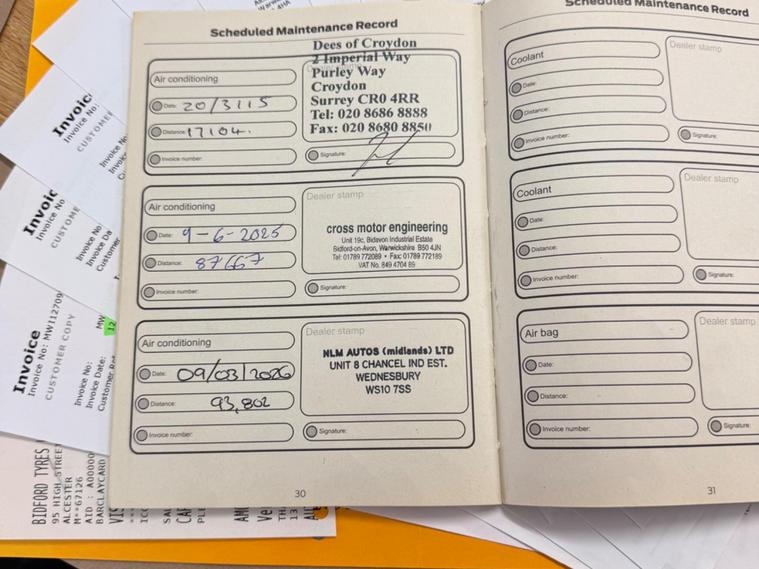 Scheduled Maintenance Record
Air conditioning
Date: 20/3/15
Distance: 17104.
Invoice number:
Dees of Croydon
2 Imperial Way
Purley Way
Croydon
Surrey CR0 4RR
Tel: 020 8686 8888
Fax: 020 8680 8850
Signature:
Air conditioning
Date: 9-6-2025
Distance: 87667
Invoice number:
Dealer stamp
cross motor engineering
Unit 19c, Bidavon Industrial Estate
Bidford-on-Avon, Warwickshire B50 4JN
Tel: 01789 772089 • Fax: 01789 772189
VAT No. 849 4704 89
Signature:
Air conditioning
Date: 09/03/2026
Distance: 93,802
Invoice number:
Dealer stamp
NLM AUTOS (midlands) LTD
UNIT 8 CHANCEL IND EST.
WEDNESBURY
WS10 7SS
Signature:
30
Scheduled Maintenance Record
Coolant
Date:
Distance:
Invoice number:
Dealer stamp
Signature:
Coolant
Date:
Distance:
Invoice number:
Dealer stamp
Signature:
Air bag
Date:
Distance:
Invoice number:
Dealer stamp
Signature:
31
Invoice
Invoice No: MW112709
CUSTOMER COPY
Invoice No:
Invoice Date:
Customer
BIDFORD TYRES
95 HIGH STREET
ALCESTER
M**67126
AID : A00000
BARCLAYCARD